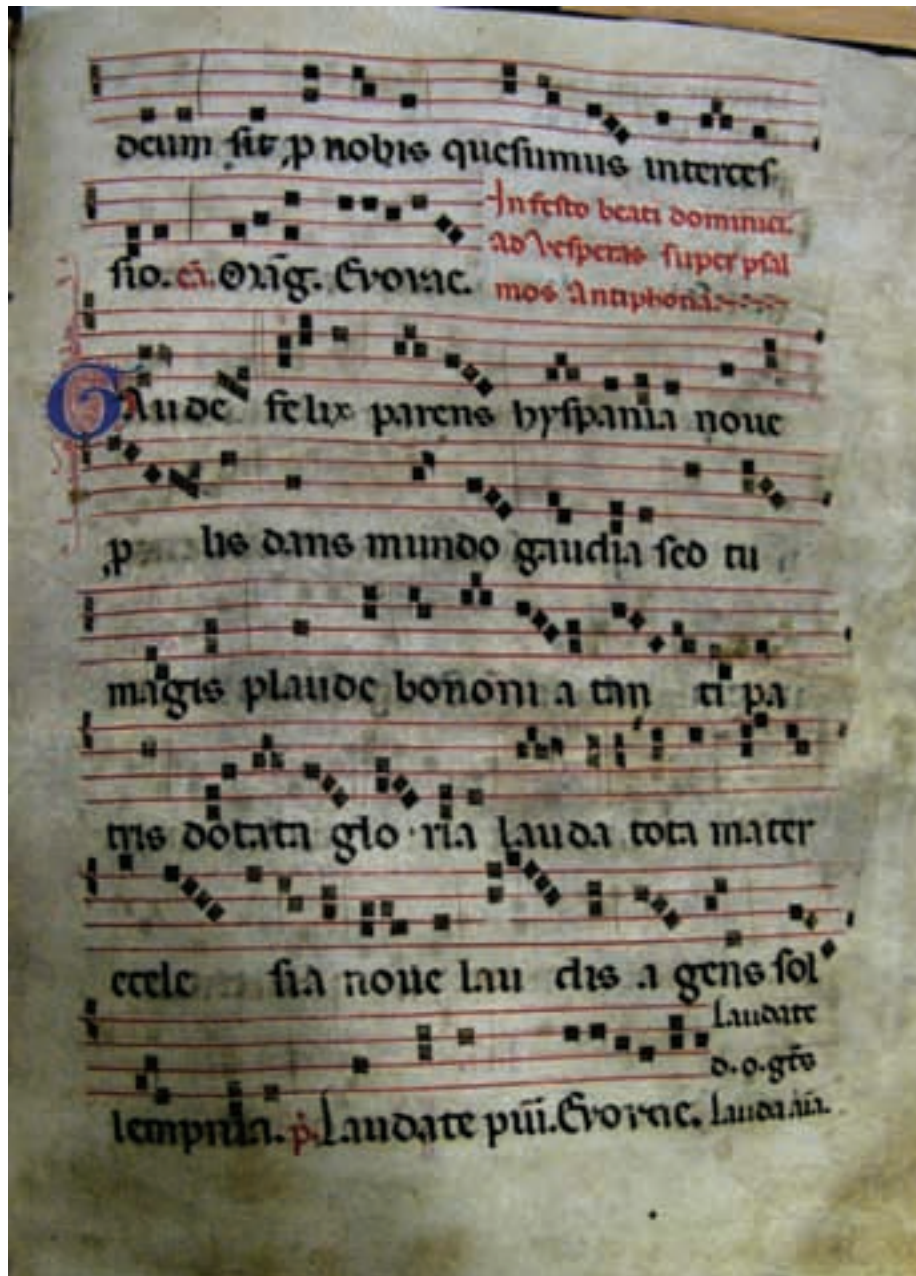 deum sit ꝓ nobis quesumus interces
sio. Orīg. Evovae.
In festo beati dominici.
ad vesperas super psal
mos Antiphona.
GAude felix parens hyspania noue
ꝓ lis dans mundo gaudia sed tu
magis plaude bononi a tan ti pa
tris dotata glo ria lauda tota mater
eccle sia noue lau dis a gens sol
Laudate
d. o. gēs
lempnia. p̄. Laudate puīī. Evovae. Lauda aīa.